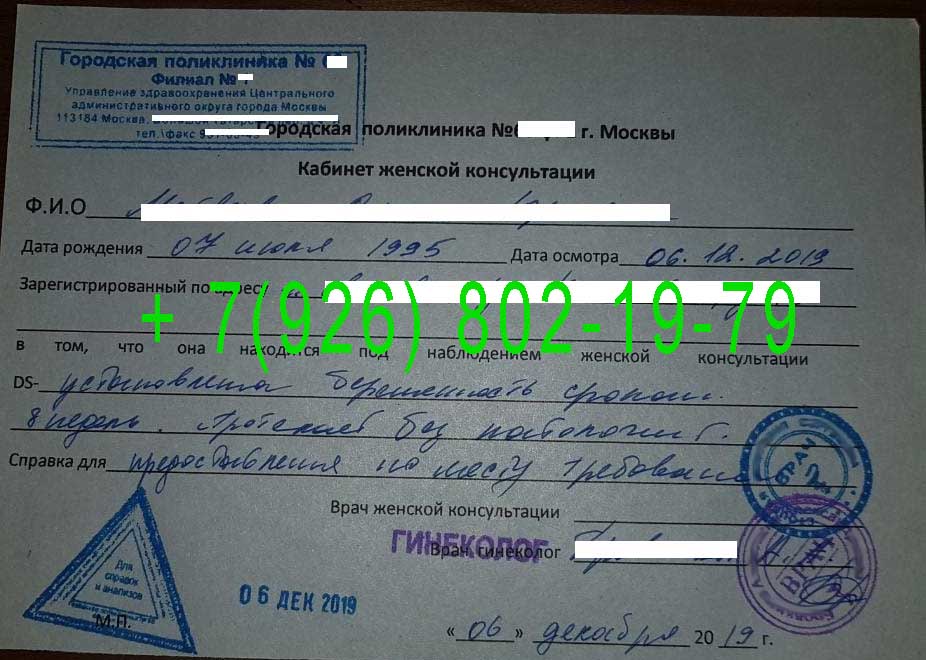 Городская поликлиника №
Филиал №
Управление здравоохранения Центрального
административного округа города Москвы
113184 Москва,
тел.\факс
Городская поликлиника № г. Москвы
Кабинет женской консультации
Ф.И.О
Дата рождения 07 июля 1995 Дата осмотра 06.12.2019
Зарегистрированный по адресу
+ 7(926) 802-19-79
в том, что она находится под наблюдением женской консультации
DS- установлена беременность сроком
8 недель. Протекает без патологий.
Справка для предоставления по месту требования
Врач женской консультации
ВРАЧ
ГИНЕКОЛОГ
Врач гинеколог
ВРАЧ
Для
справок
и анализов
М.П.
06 ДЕК 2019
«06» декабря 2019 г.